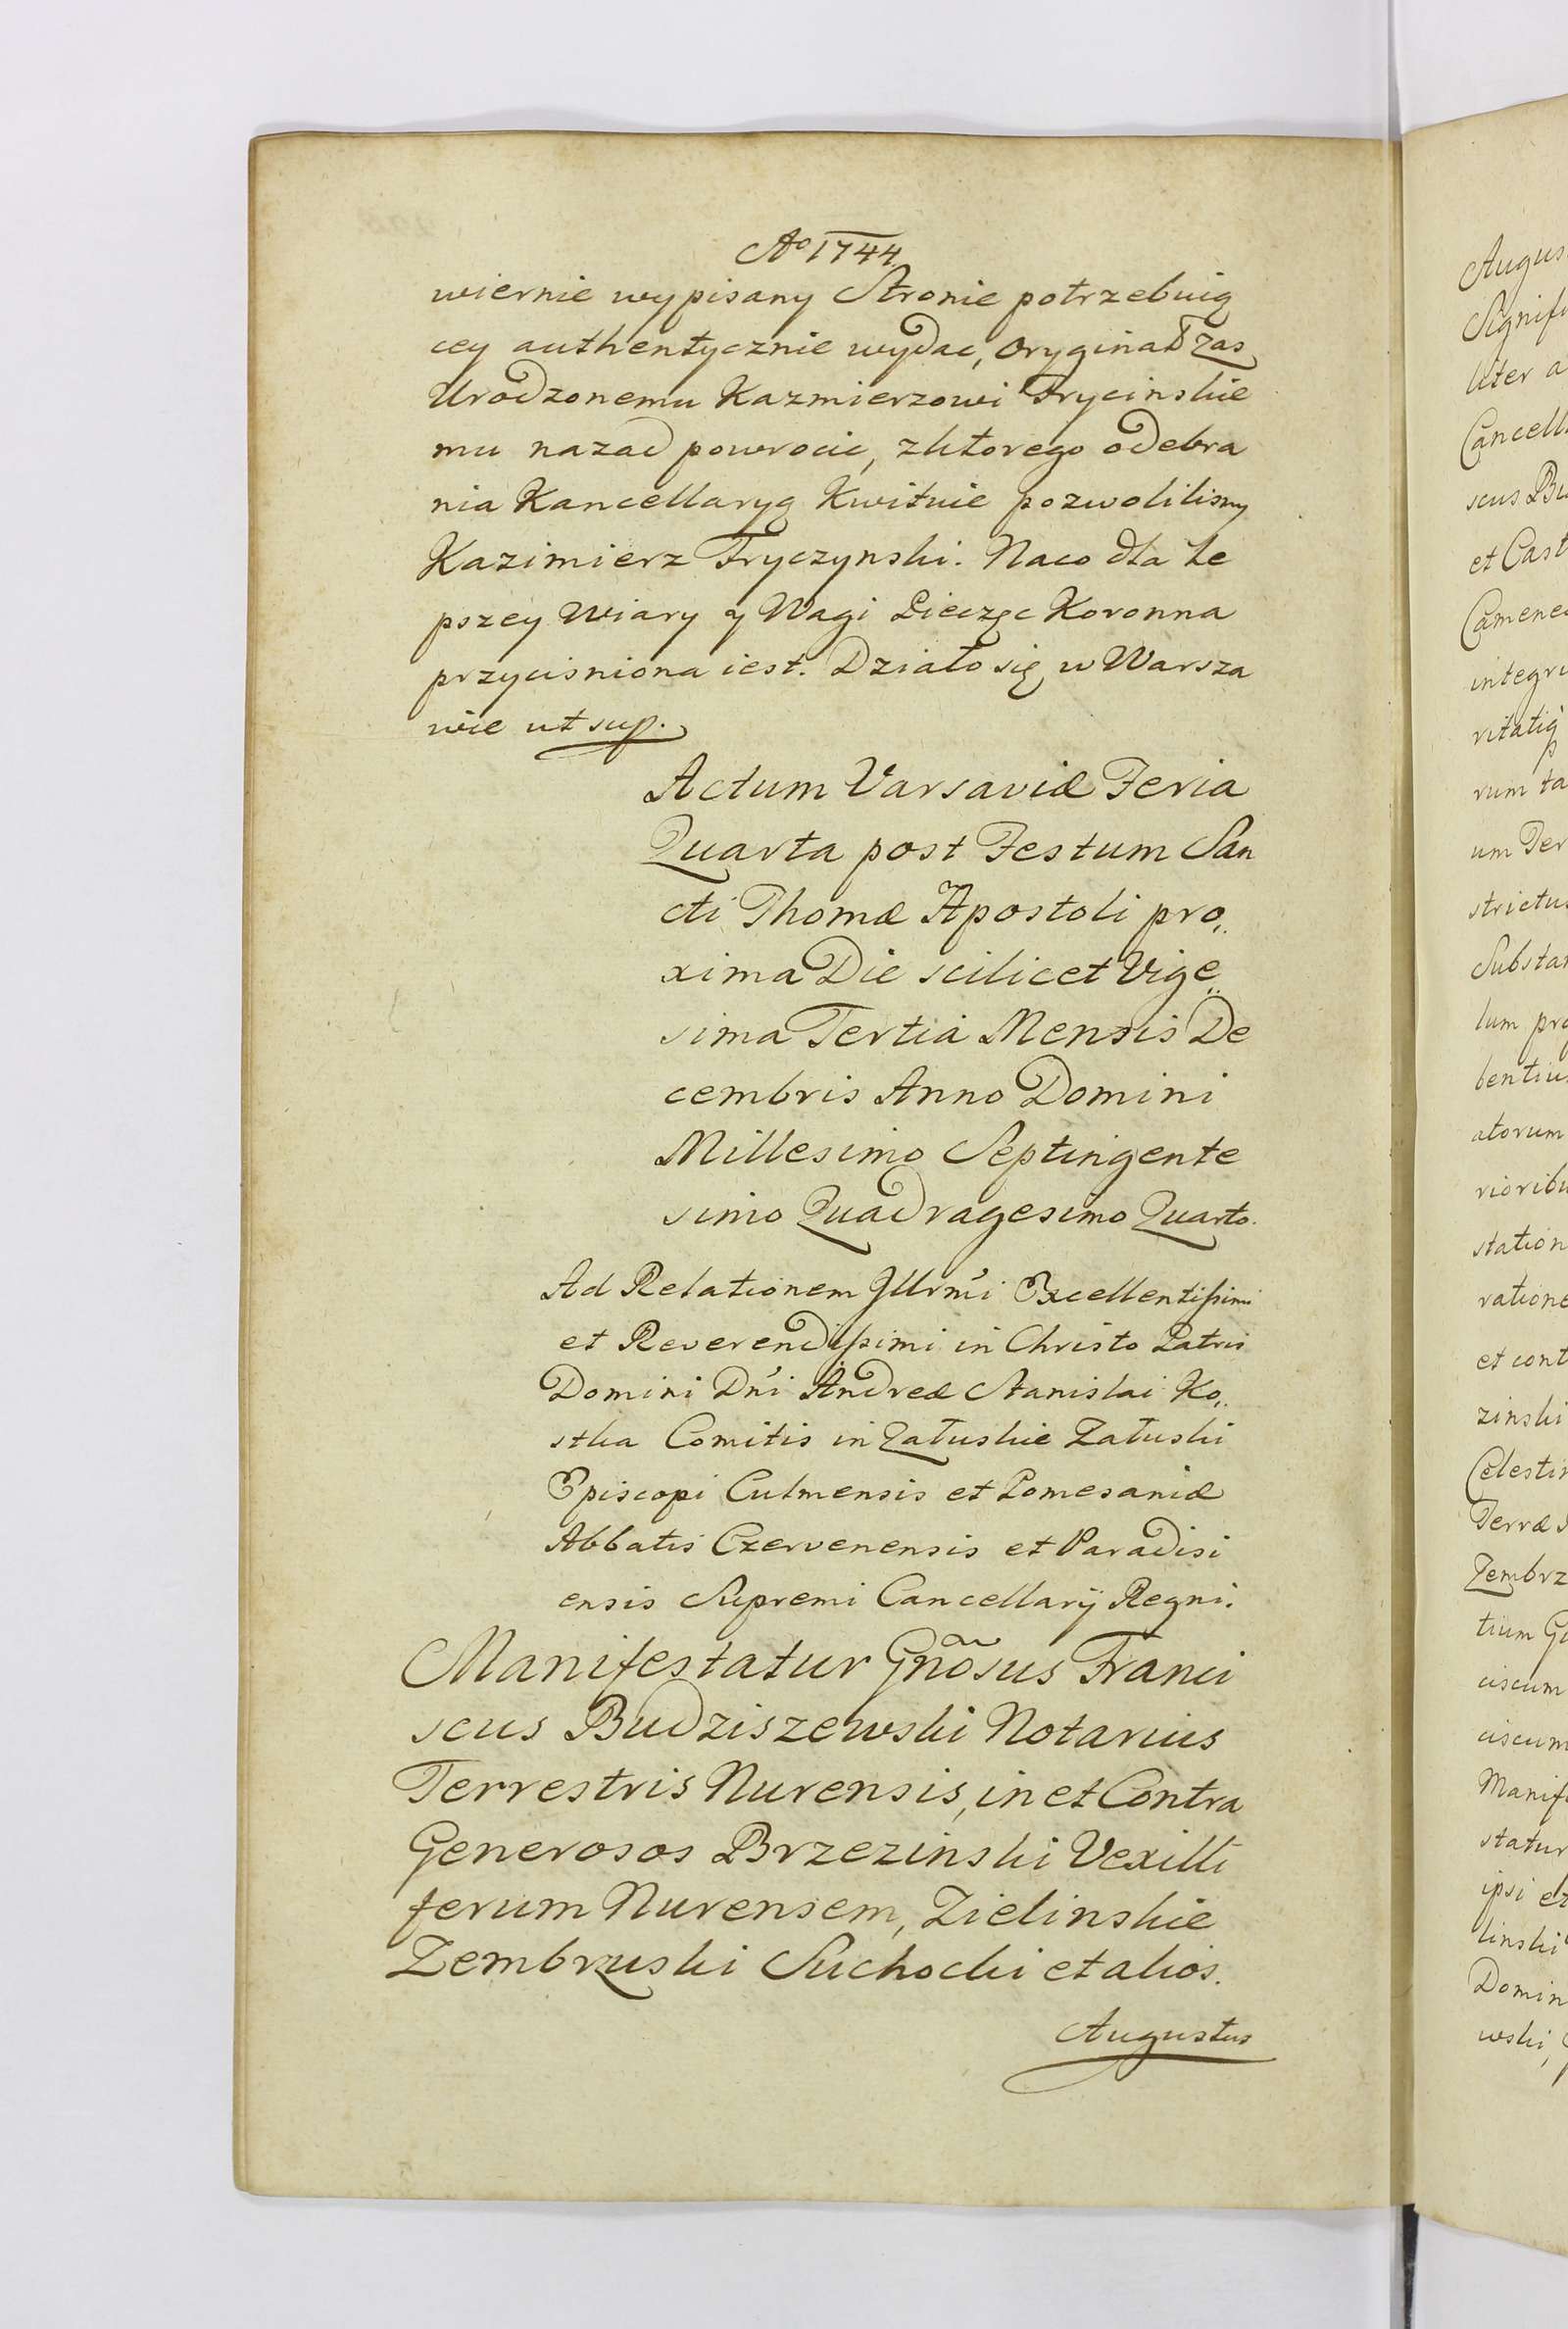 Aº 1744.
wiernie wypisany Stronie potrzebuią
cey authentycznie wydac, Oryginał zas
Urodzonemu Kazmierzowi Trycinskie
mu nazad powrocic, zktorego odebra
nia Kancellaryą Kwituie pozwolilismy
Kazimierz Tryczynski. Naco dla le
pszey Wiary y Wagi Pieczęc Koronna
przycisniona iest. Działo się w Warsza
wie ut sup.
Actum Varsaviæ Feria
Quarta post Festum San
cti Thomæ Apostoli pro„
xima Die scilicet Vige„
sima Tertia Mensis De
cembris Anno Domini
Millesimo Septingente
simo Quadragesimo Quarto.
Ad Relationem Jllrm̃i Excellentißimi
et Reverendißimi in Christo Patris
Domini Dñi Andreæ Stanislai Ko„
stka Comitis in Załuskie Załuski
Episcopi Culmensis et Pomesaniæ
Abbatis Czervenensis et Paradisi
ensis Supremi Cancellarÿ Regni.
Manifestatur Gnõsus Franci
scus Budziszewski Notarius
Terrestris Nurensis, in et Contra
Generosos Brzezinski Vexilli
ferum Nurensem, Zielinskie
Zembrzuski Suchocki et alios.
Augustus
Augus
Signifi
liter a
Cancell
scus Bu
et Cast
Camene
integri
vitatiq
rum ta
um Ter
strictus
Substan
lum pro
bentiu
atorum
rioribu
station
ratione
et cont
zinski
Celestin
Terræ
Zembrz
tium G
ciscum
ciscum
Manife
statur
ipsi et
linski
Domin
wski,